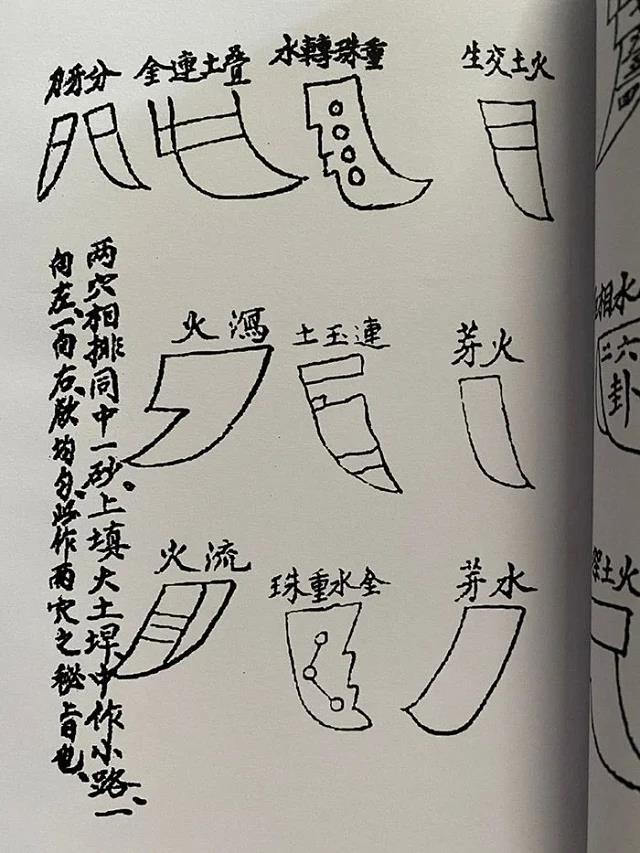 火土交生
重珠轉水
叠土連全
分牙
火芽
連玉土
瀉火
水芽
全水重珠
流火
两穴相排同中一砂。上填大土埕、中作小路、一
向左、一向右、均匀、此作两穴之秘旨也、
水相
六二
卦
火土